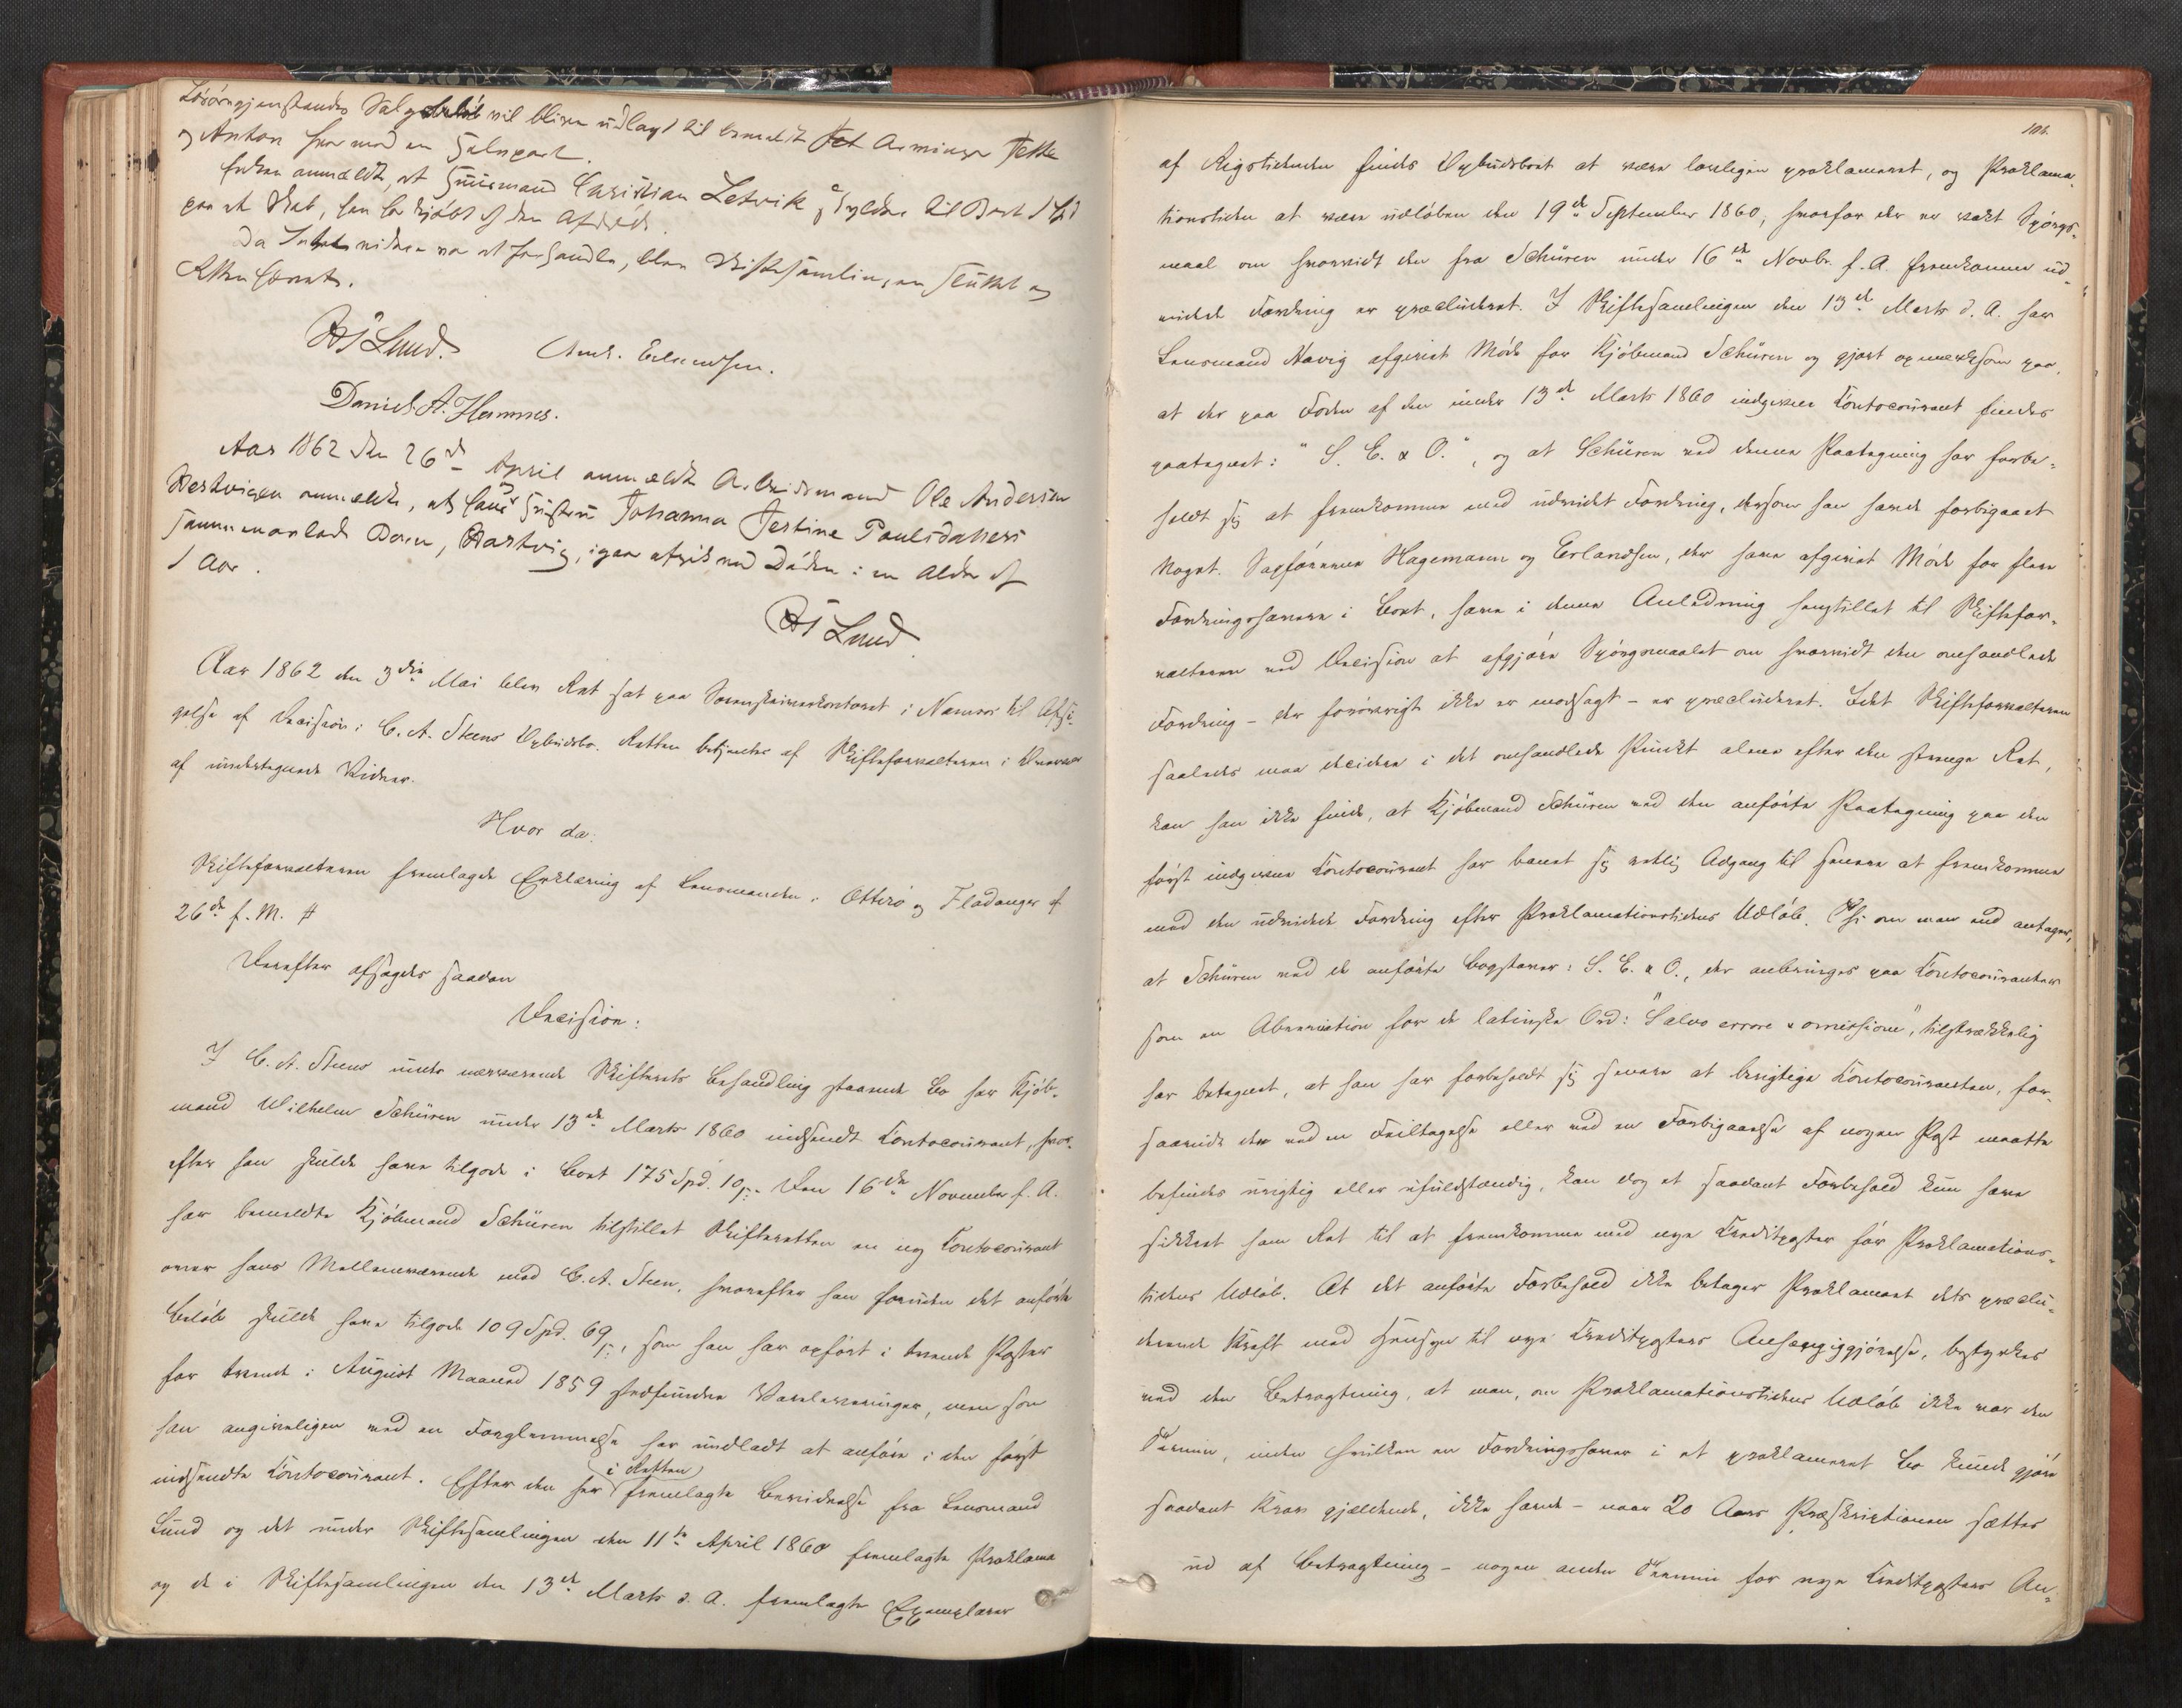 Løsøregjenstandes Salg vil blive udlagt til bemeldte Arminge Jette
og Anton hver med en Halvpart.
Enken anmeldte, at Huusmand Christian Letvik er skyldig til Boet 1 Spd
paa et Skab, han har kjøbt af den Afdøde.
Da Intet videre var at forhandle, blev Skiftesamlingen sluttet og
Retten hævet.
Lund. And. Erlandsen.
Daniel A. Hammes.
Aar 1862 den 26de April anmeldte Arbeidsmand Ole Andersen
Vestvigen anmeldte, at hans Hustru Johanna Jertine Paulsdatters
sammenavlede Barn, Hartvig, igaar afgik ved Døden i en Alder af
1 Aar.
Lund
Aar 1862 den 3die Mai blev Ret sat paa Sorenskriverkontoret i Namsos til Afsi-
gelse af Decision i C. A. Steens Opbudsbo. Retten betjentes af Skifteforvalteren i Overvær
af undertegnede Vidner.
Hvor da:
Skifteforvalteren fremlagde Erklæring af Lensmanden i Otterø og Fladanger af
26de f. M. #
Derefter afsagdes saadan
Decision:
I C. A. Steens under nærværende Skifterets Behandling staaende Bo har Kjøb-
mand Wilhelm Schüren under 13de Marts 1860 indsendt Contocourant, hvor-
efter han skulde have tilgode i Boet 175 Spd. 10 s. Den 16de November f. A.
har bemeldte Kjøbmand Schüren tilstillet Skifteretten en ny Contocourant
over hans Mellemværende med C. A. Steen, hvorefter han foruden det anførte
Beløb skulde have tilgode 109 Spd. 69 s., som han har opført i tvende Poster
for tvende i August Maaned 1859 stedfundne Vareleveringer, men som
han angiveligen ved en Forglemmelse har undladt at anføre i den først
indsendte Contocourant. Efter den her i Retten fremlagte Bevidnelse fra Lensmand
Lund og det under Skiftesamlingen den 11te April 1860 fremlagte Proklama
og de i Skiftesamlingen den 13de Marts d. A. fremlagte Exemplarer
101.
af Rigstidende findes Opbudsboet at være lovligen proklameret, og Proklama-
tionstiden at være udløben den 19de September 1860, hvorfor der er vakt Spørgs-
maal om hvorvidt den fra Schüren under 16de Novbr. f. A. fremkomne ud-
videde Fordring er præcluderet. I Skiftesamlingen den 13de Marts d. A. har
Lensmand Havig afgivet Møde for Kjøbmand Schüren og gjort opmærksom paa,
at der paa Foden af den under 13de Marts 1860 indgivne Contocourant findes
paategnet: "S. E. & O.", og at Schüren ved denne Paategning har forbe-
holdt sig at fremkomme med udvidet Fordring, dersom han havde forbigaaet
Noget. Sagførerne Hagemann og Erlandsen, der have afgivet Møde for flere
Fordringshavere i Boet, have i denne Anledning henstillet til Skiftefor-
valteren ved Decision at afgjøre Spørgsmaalet om hvorvidt den omhandlede
Fordring – der forøvrigt ikke er modsagt – er præcluderet. Idet Skifteforvalteren
saaledes maa decidere i det omhandlede Punkt alene efter den strenge Ret,
kan han ikke finde, at Kjøbmand Schüren ved den anførte Paategning paa den
først indgivne Contocourant har banet sig retlig Adgang til senere at fremkomme
med den udvidede Fordring efter Proklamationstidens Udløb. Thi om man end antager,
at Schüren ved de anførte Bogstaver: S. E. & O., der anbringes paa Contocouranter
som en Abreviation for de latinske Ord: "Salvo errore & omissione", tilstrækkelig
har betegnet, at han har forbeholdt sig senere at berigtige Contocouranten, for-
saavidt den ved en Feiltagelse eller ved en Forbigaaelse af nogen Post maatte
befindes urigtig eller ufuldstændig, kan dog et saadant Forbehold kun have
sikkret ham Ret til at fremkomme med nye Creditposter før Proklamations-
tidens Udløb. At det anførte Forbehold ikke betager Proklamaet dets præclu-
derende Kraft med Hensyn til nye Creditposters Anhængiggjørelse, bestyrkes
ved den Betragtning, at man, om Proklamationstidens Udløb ikke var den
Termin, inden hvilken en Fordringshaver i et proklameret Bo kunde gjøre
saadant Krav gjældende, ikke havde – naar 20 Aars Præskriptionen sættes
ud af Betragtning – nogen anden Termin for nye Creditposters An-